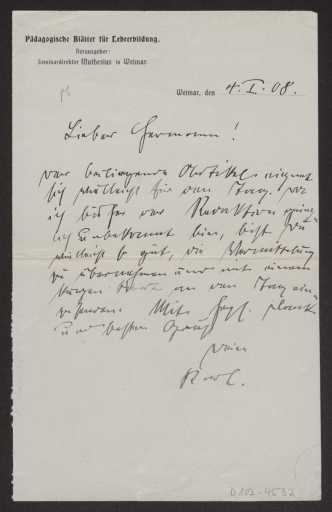 Pädagogische Blätter für Lehrerbildung.
Herausgeber:
Seminardirektor Muthesius in Weimar.
Weimar, den 4. I. 08.
Lieber Hermann!
der beiliegende Artikel eignet
sich vielleicht für den Tag. Da
ich bisher der Redaktion gänz-
lich unbekannt bin, bist Du
vielleicht so gut, die Vermittelung
zu übernehmen und mit einem
kurzen Wort an den Tag ein-
zusenden. Mit herzl. Dank
und besten Gruß
Dein
Karl.
D 102-4532